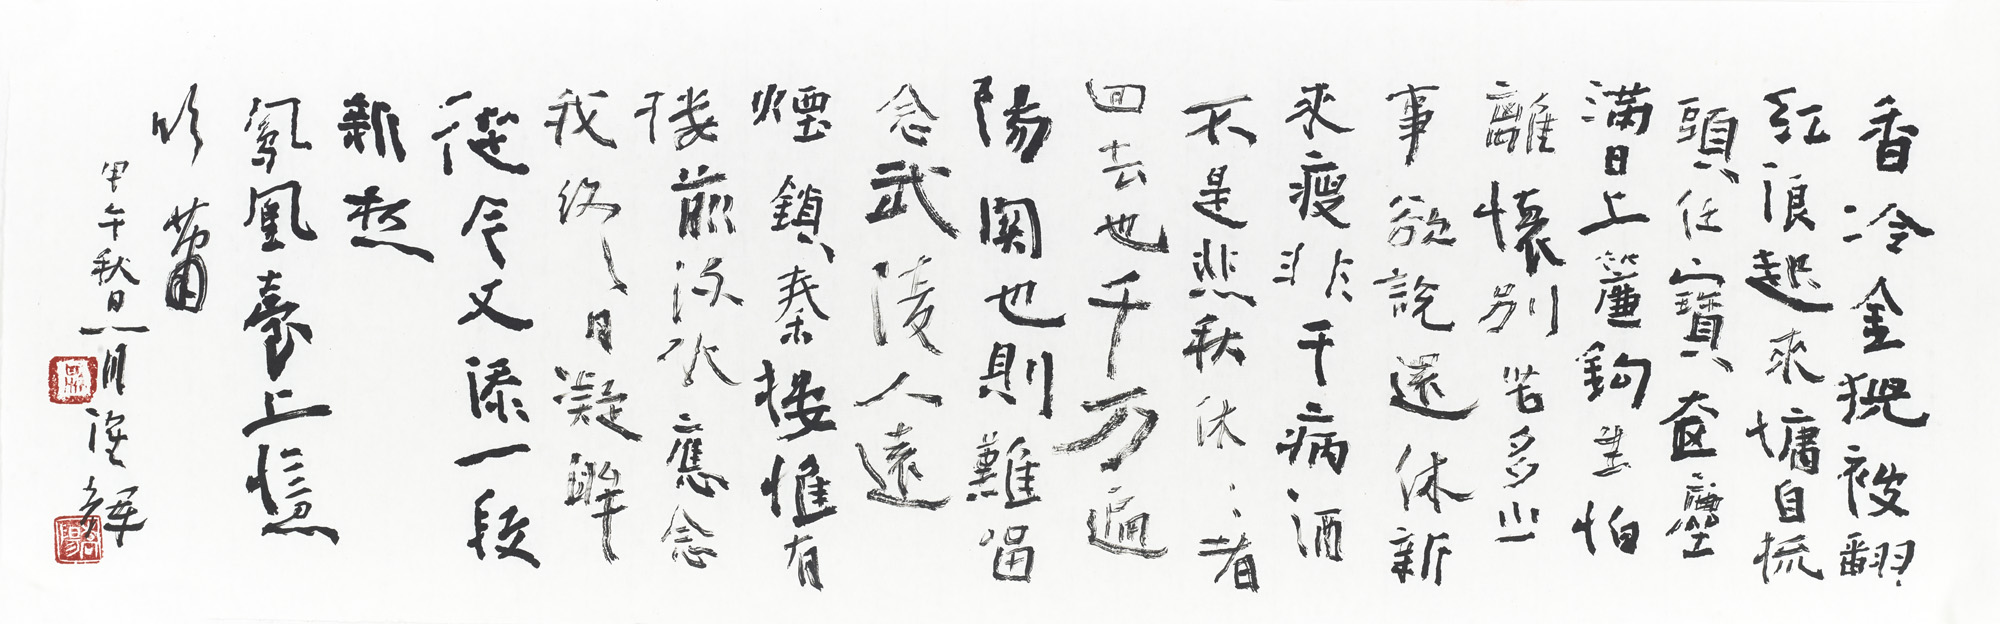 香冷金猊被翻
紅浪起來慵自梳
頭任寶奩塵
滿日上簾鉤生怕
離懷別苦多少
事欲說還休新
來瘦非干病酒
不是悲秋休:者
回去也千万遍
陽関也則難留
念武陵人遠
煙鎖秦樓惟有
樓前流水應念
我終日凝眸
從今又添一段
新愁
鳳凰臺上憶
吹簫
甲午秋日